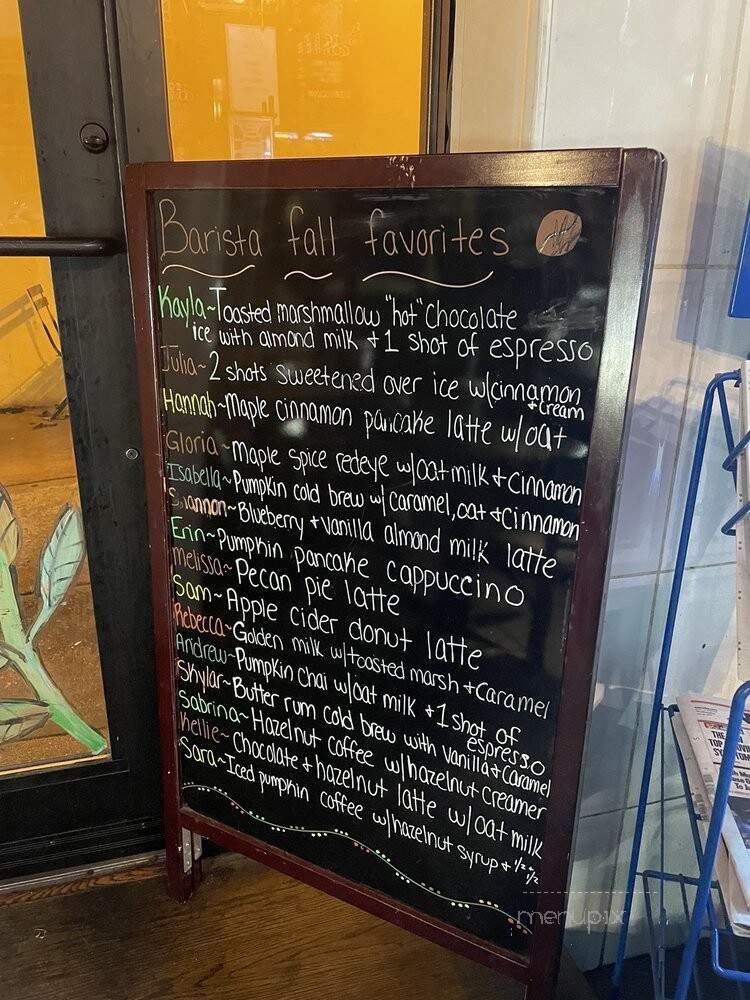 Barista fall favorites
Kayla~Toasted marshmallow "hot" Chocolate
ice with almond milk + 1 shot of espresso
Julia~2 shots sweetened over ice w/cinnamon
+ cream
Hannah~Maple cinnamon pancake latte w/oat
Gloria~Maple spice redeye w/oatmilk + cinnamon
Isabella~Pumpkin cold brew w/ caramel, oat + cinnamon
Shannon~Blueberry + vanilla almond milk latte
Erin~Pumpkin pancake cappuccino
melissa~Pecan pie latte
Sam~Apple cider donut latte
Rebecca~Golden milk w/toasted marsh + caramel
Andrew~Pumpkin chai w/oat milk + 1 shot of
espresso
Skylar~Butter rum cold brew with vanilla + caramel
Sabrina~Hazelnut coffee w/hazelnut creamer
Kellie~Chocolate + hazelnut latte w/oat milk
Sara~Iced pumpkin coffee w/hazelnut syrup + 1/2 + 1/2
menupix